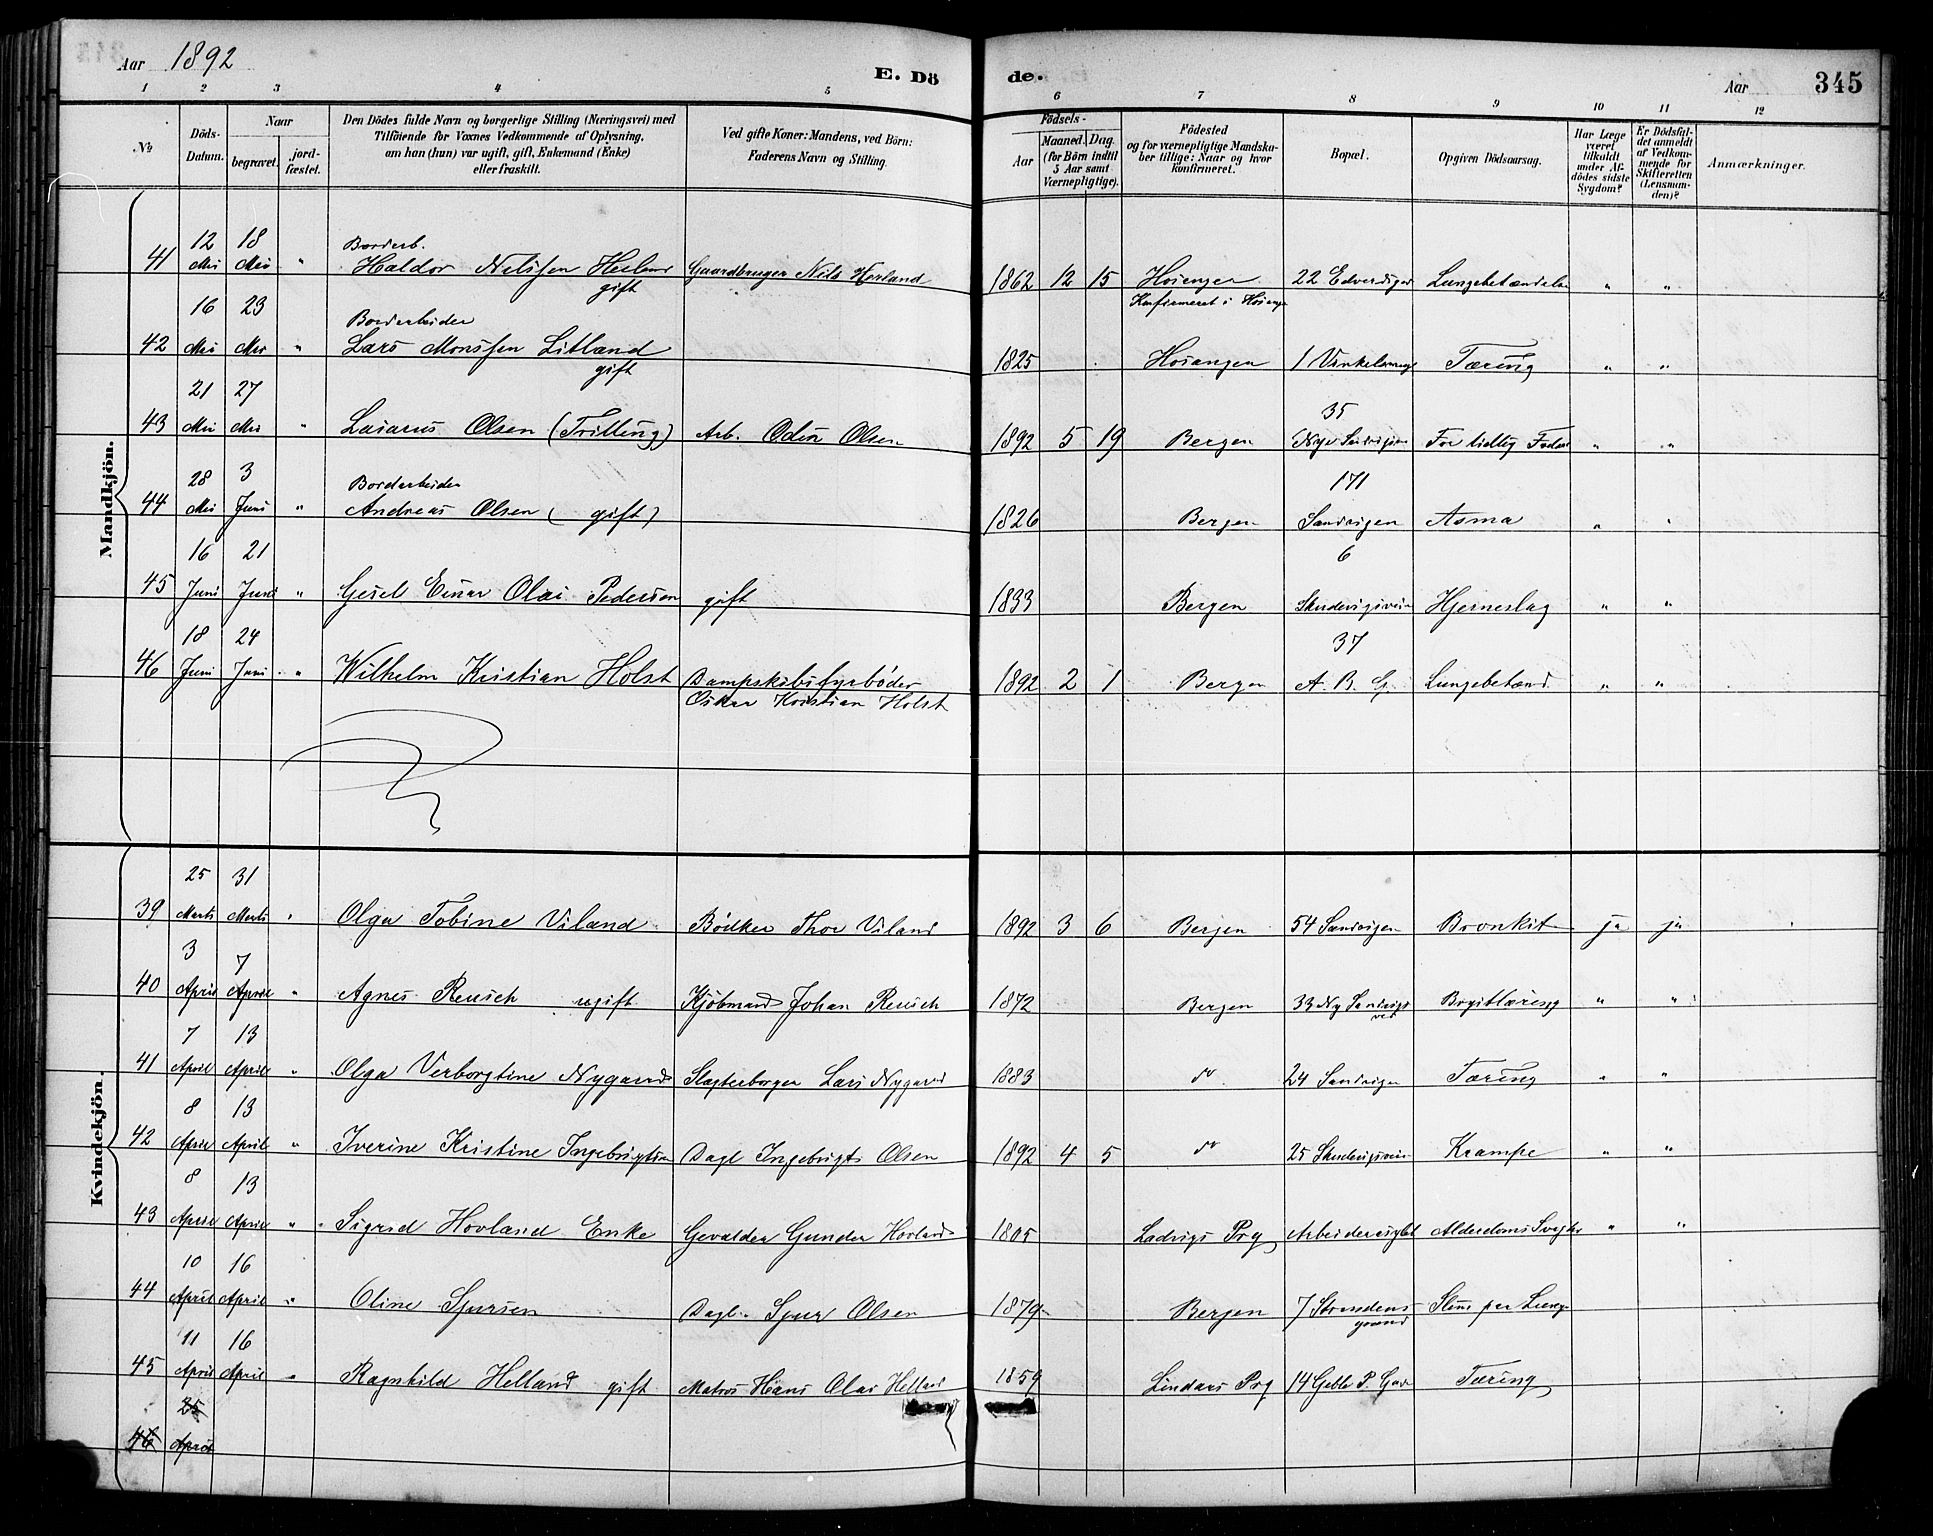 Aar 1892
E. Dö
de.
Aar
345
1 2 3 4 5 6 7 8 9 10 11 12
No
Döds-Datum.
Naar
begravet.
jord-fæstet.
Den Dödes fulde Navn og borgerlige Stilling (Næringsvei) med
Tilföiende for Voxnes Vedkommende af Oplysning,
om han (hun) var ugift, gift, Enkemand (Enke)
eller fraskilt.
Ved gifte Koner: Mandens, ved Börn:
Faderens Navn og Stilling.
Födsels-
Aar
Maaned. Dag.
(for Börn indtil
5 Aar samt
Værnepligtige).
Födested
og for værnepligtige Mandska-
ber tillige: Naar og hvor
konfirmeret.
Bopæl.
Opgiven Dödsaarsag.
Har Læge
været
tilkaldt
under Af-
dödes sidste
Sygdom?
Er Dödsfal-
det anmeldt
af Vedkom-
mende for
Skifteretten
(Lensman-
den)?
Anmærkninger.
Mandkjön.
41 12 Mai 18 Mai " Bordarb. Haldor Nelssen gift Gaardbruger Nils Herland 1862 12 15 Hosanger Konfirmeret i 22 Lungebetændelse " "
42 16 Mai 23 Mai " Bordarbeider Lars Monssen Litland gift 1825 Hosanger 1 Tæring " "
43 21 Mai 27 Mai " Lasarus Olsen (Trilling) Arb. Odin Olsen 1892 5 19 Bergen 35 Nye For tidlig " "
44 28 Mai 3 Juni " Bordarbeider Andreas Olsen (gift) 1826 Bergen 171 Sandvigen Asma " "
45 16 Juni 21 Juni " Einar Olai Pedersen gift 1833 Bergen 6 Hjerneslag " "
46 18 Juni 24 Juni " Wilhelm Kristian Holst Dampskibsfyrböder Oskar Kristian Holst 1892 2 1 Bergen 37 A. B. G. Lungebetænd. " "
Kvindekjön.
39 25 Marts 31 Marts " Olga Tobine Viland Bödker Thor Viland 1892 3 6 Bergen 54 Sandvigen Bronkit ja ja
40 3 April 7 April " Agnes Reusch ugift Kjöbmand Johan Reusch 1872 Bergen 33 Ny Brysttæring " "
41 7 April 13 April " Olga Nygaard Lars Nygaard 1883 do 24 Sandvigen Tæring " "
42 8 April 13 April " Iverine Kristine Ingebrigtsen Dagl Ingebrigt Olsen 1892 4 5 do 25 Krampe " "
43 8 April 13 April " Sigrid Hovland Enke Gevaldier Gunder Hovland 1805 Ladvigs Prg Alderdoms " "
44 10 April 16 April " Oline Sjursen Dagl. Sjur Olsen 1879 Bergen 7
45 11 April 16 April " Ragnhild Helland gift Matros Hans Olai Helland 1859 Lindaas Prg 14 Tæring
46 25 April